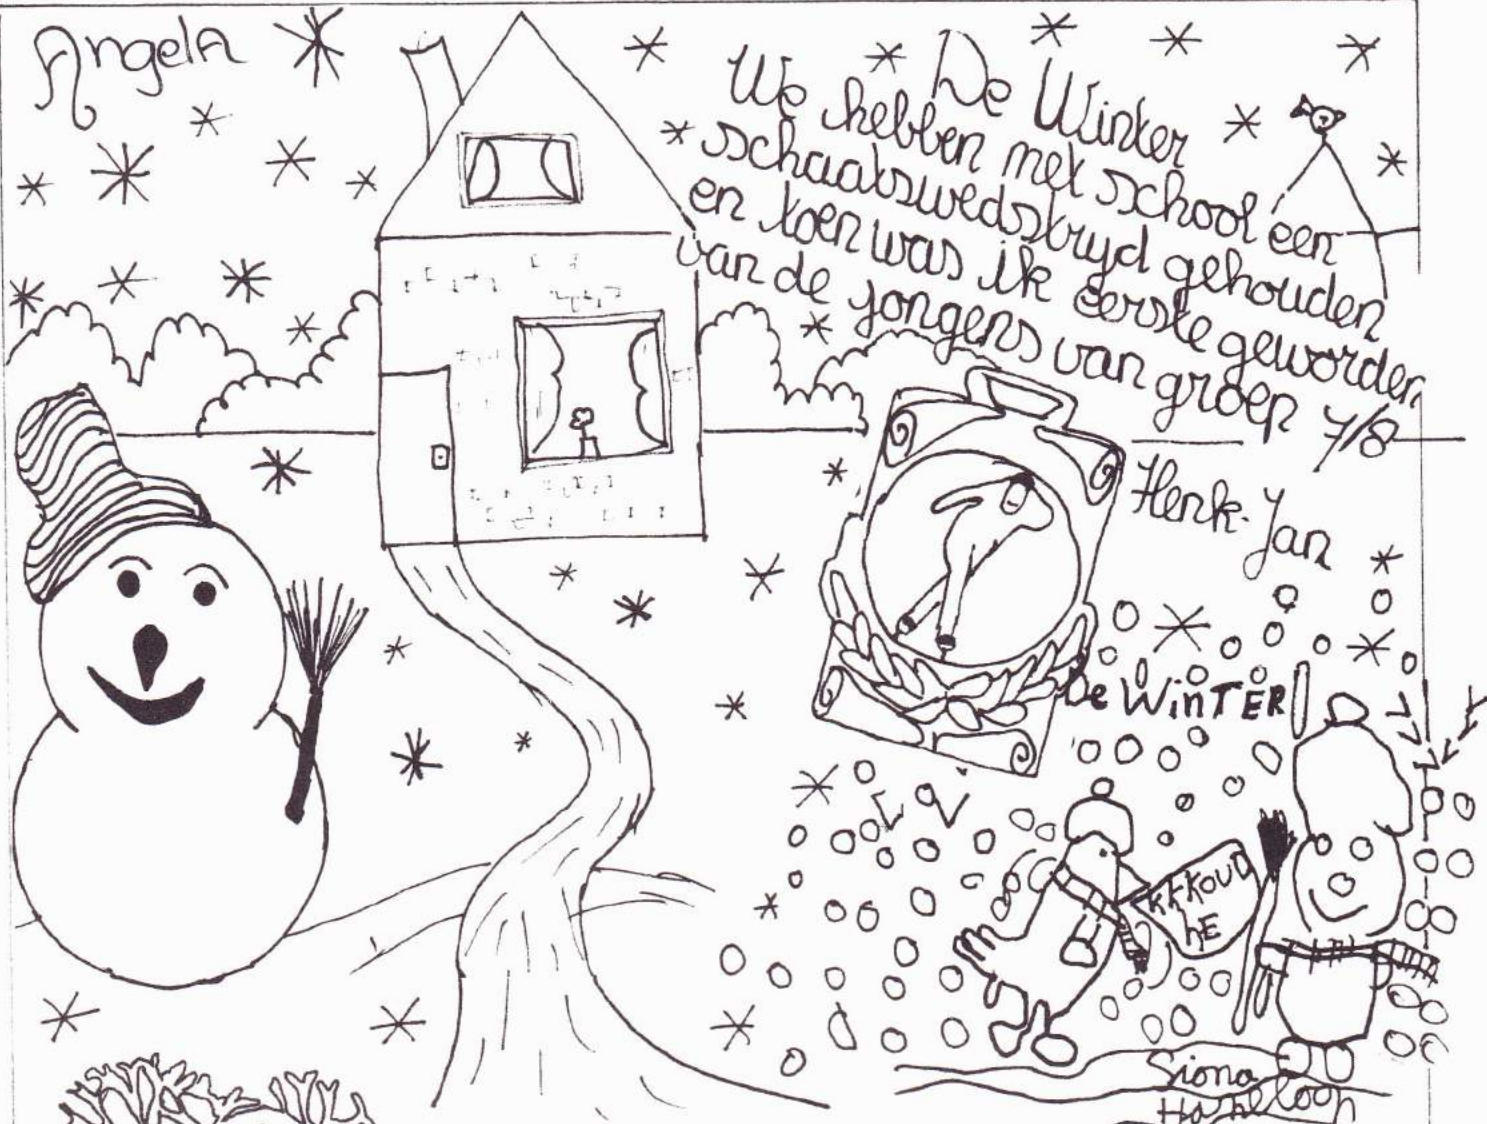 Angela
De Winter
We hebben met school een
schaatswedstryd gehouden
en toen was ik eerste geworden
van de jongens van groep 7/8
Henk-Jan
De WinTER!
KFKOUD
hE
Siona
Hazeloop